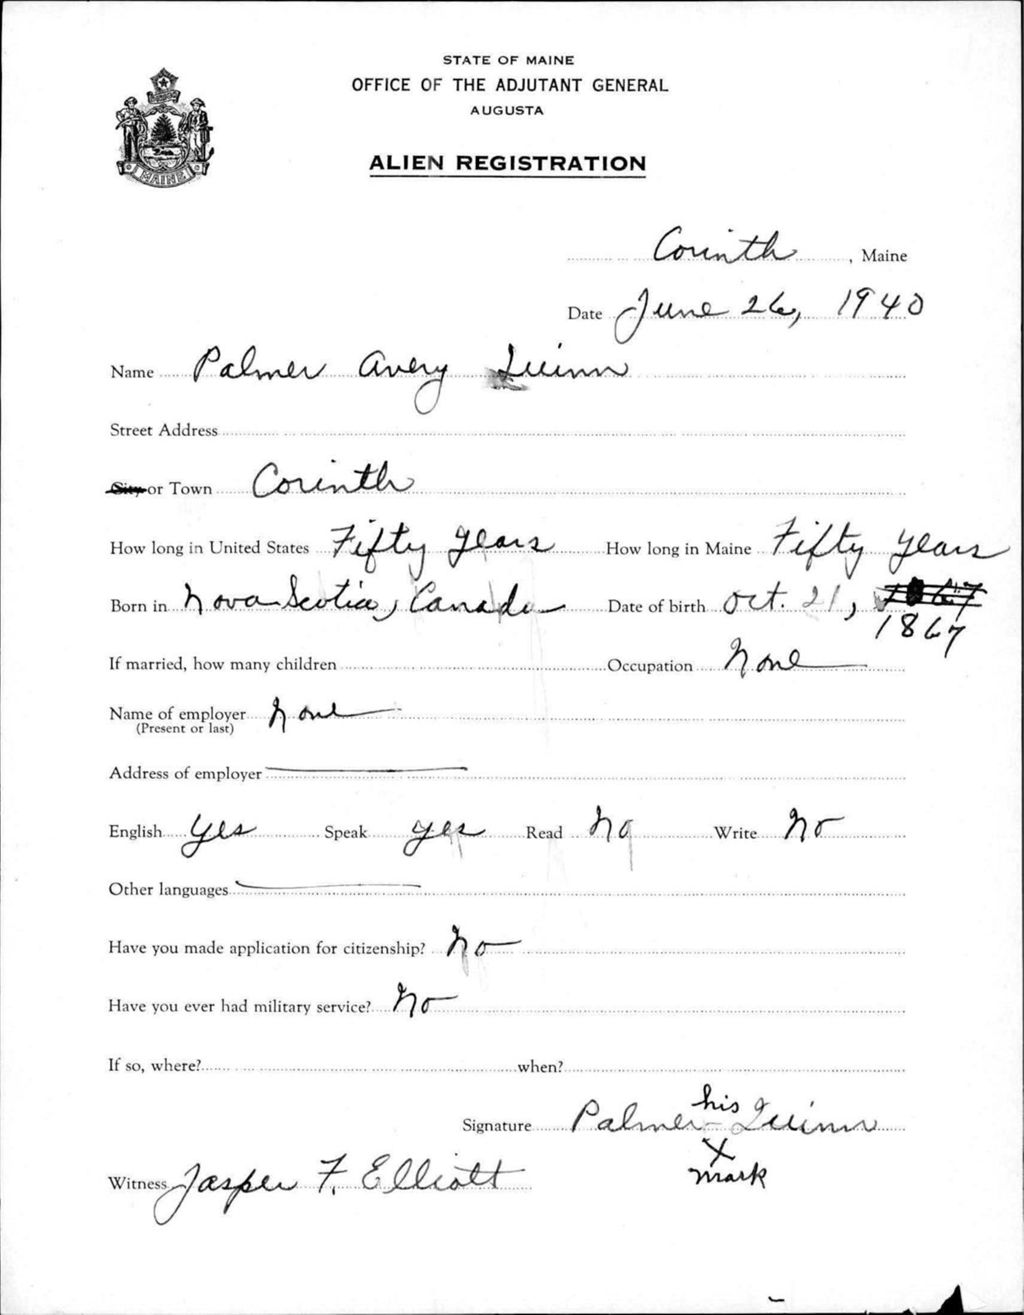 STATE OF MAINE
OFFICE OF THE ADJUTANT GENERAL
AUGUSTA
ALIEN REGISTRATION
MAINE
Corinth, Maine
Date June 26, 1940
Name Palmer Avery Quinn
Street Address
City or Town Corinth
How long in United States Fifty years How long in Maine Fifty years
Born in Nova Scotia, Canada Date of birth Oct. 21, 1867
1867
If married, how many children Occupation None
Name of employer None
(Present or last)
Address of employer
English Yes Speak yes Read No Write No
Other languages
Have you made application for citizenship? No
Have you ever had military service? No
If so, where? when?
his
Signature Palmer Quinn
X
mark
Witness Jasper F. Elliott